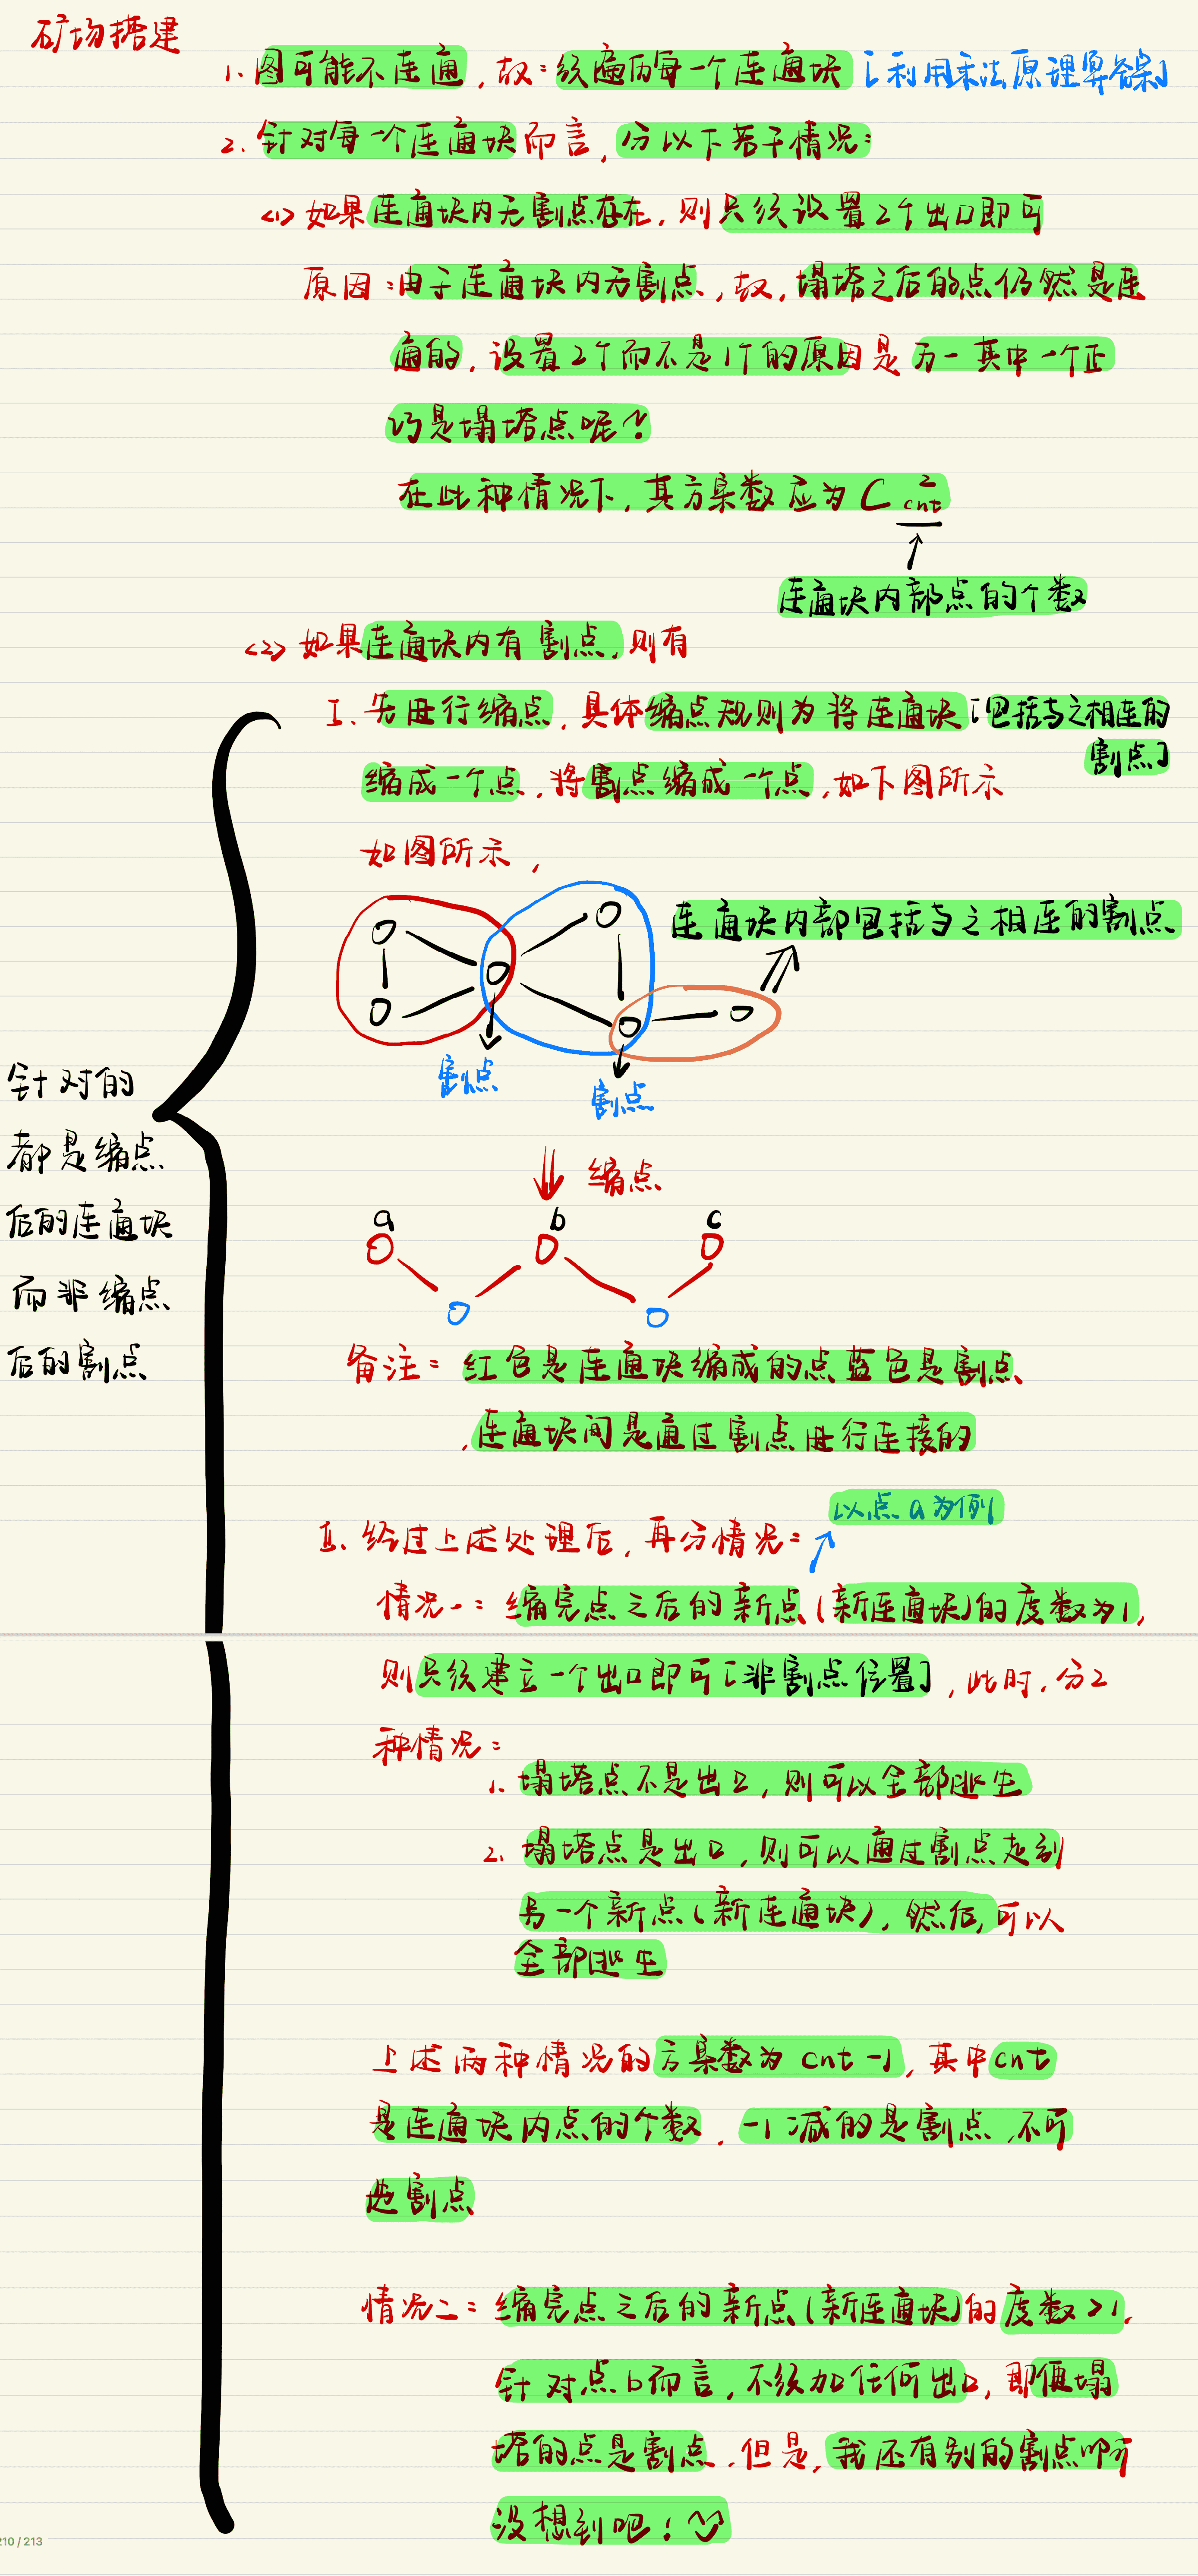 矿场搭建
1. 图可能不连通,故:须遍历每一个连通块[利用乘法原理算答案]
2. 针对每一个连通块而言,分以下若干情况:
<1> 如果连通块内无割点存在,则只须设置2个出口即可
原因:由于连通块内无割点,故,塌塔之后的点仍然是连
通的,设置2个而不是1个的原因是万一其中一个正
巧是塌塔点呢?
在此种情况下,其方案数应为 C 2 cnt
连通块内部点的个数
<2> 如果连通块内有割点,则有
I. 先进行缩点,具体缩点规则为将连通块[包括与之相连的
割点]
缩成一个点,将割点缩成一个点,如下图所示
如图所示,
连通块内部包括与之相连的割点
割点
割点
缩点
a b c
备注:红色是连通块缩成的点蓝色是割点
,连通块间是通过割点进行连接的
针对的
都是缩点
后的连通块
而非缩点
后的割点
以点a为例
II. 经过上述处理后,再分情况:
情况一:缩完点之后的新点(新连通块)的度数为1,
则只须建立一个出口即可[非割点位置],此时,分2
种情况:
1. 塌塔点不是出口,则可以全部逃生
2. 塌塔点是出口,则可以通过割点走到
另一个新点(新连通块),然后,可以
全部逃生
上述两种情况的方案数为 cnt-1,其中cnt
是连通块内点的个数,-1减的是割点,不可
选割点
情况二:缩完点之后的新点(新连通块)的度数>1,
针对点b而言,不须加任何出口,即便塌
塔的点是割点,但是,我还有别的割点啊
没想到吧!
210 / 213